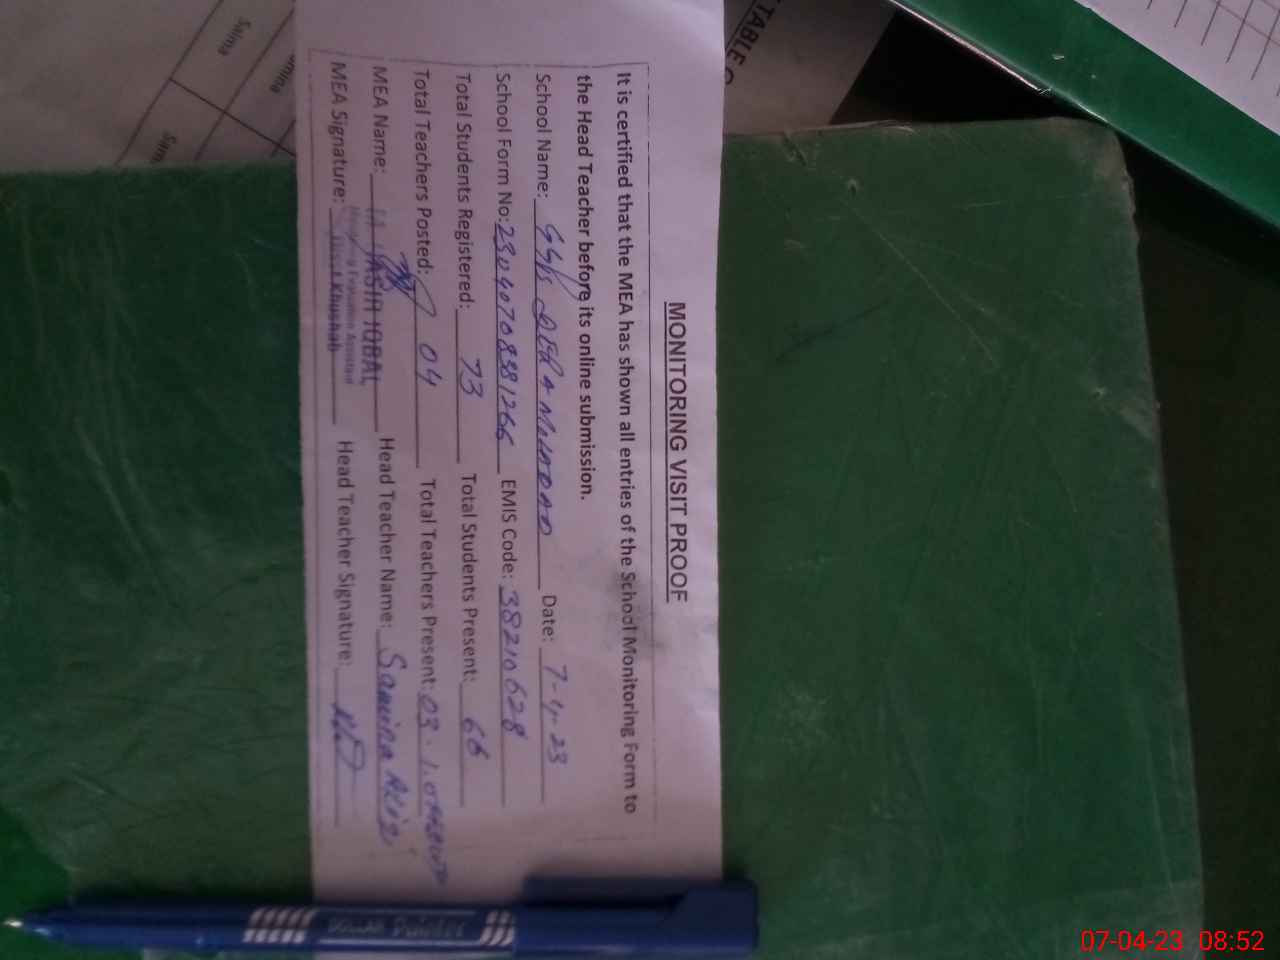 MONITORING VISIT PROOF
It is certified that the MEA has shown all entries of the School Monitoring Form to
the Head Teacher before its online submission.
School Name: GGPS DERA MOHDAD Date: 7-4-23
School Form No: 23040708381266 EMIS Code: 38210628
Total Students Registered: 73 Total Students Present: 66
Total Teachers Posted: 04 Total Teachers Present: 03.
MEA Name: YASIR IQBAL Head Teacher Name: Samina
Monitoring Evaluation Assistant
MEA Signature: Distt Khushab Head Teacher Signature:
TABLE
Saima
DOLLAR Pointer
07-04-23 08:52